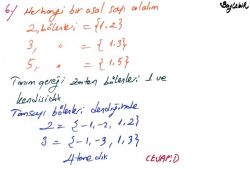 6) Herhangi bir asal sayı alalım
2, bölenleri = {1,2}
3, " = {1,3}
5, " = {1,5}
Tanım gereği zaten bölenleri 1 ve
kendisidir
Tamsayı bölenleri dendiğinde
2 = {-1,-2, 1,2}
3 = {-1,-3, 1,3}
4 tanedir
CEVAP:D